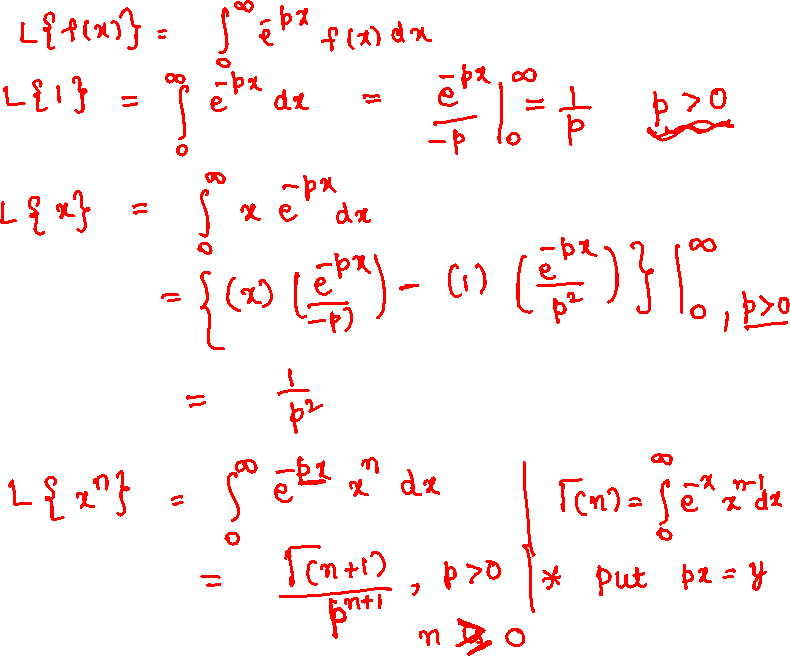 L{f(x)} = ∫₀^∞ e^{-px} f(x) dx
L{1} = ∫₀^∞ e^{-px} dx = e^{-px}/-p |₀^∞ = 1/p p > 0
L{x} = ∫₀^∞ x e^{-px} dx
= { (x) (e^{-px}/-p) - (1) (e^{-px}/p²) } |₀^∞ , p>0
= 1/p²
L{xⁿ} = ∫₀^∞ e^{-px} xⁿ dx | Γ(n) = ∫₀^∞ e^{-x} x^{n-1} dx
= Γ(n+1)/p^{n+1} , p>0 | * put px = y
n ≥ 0